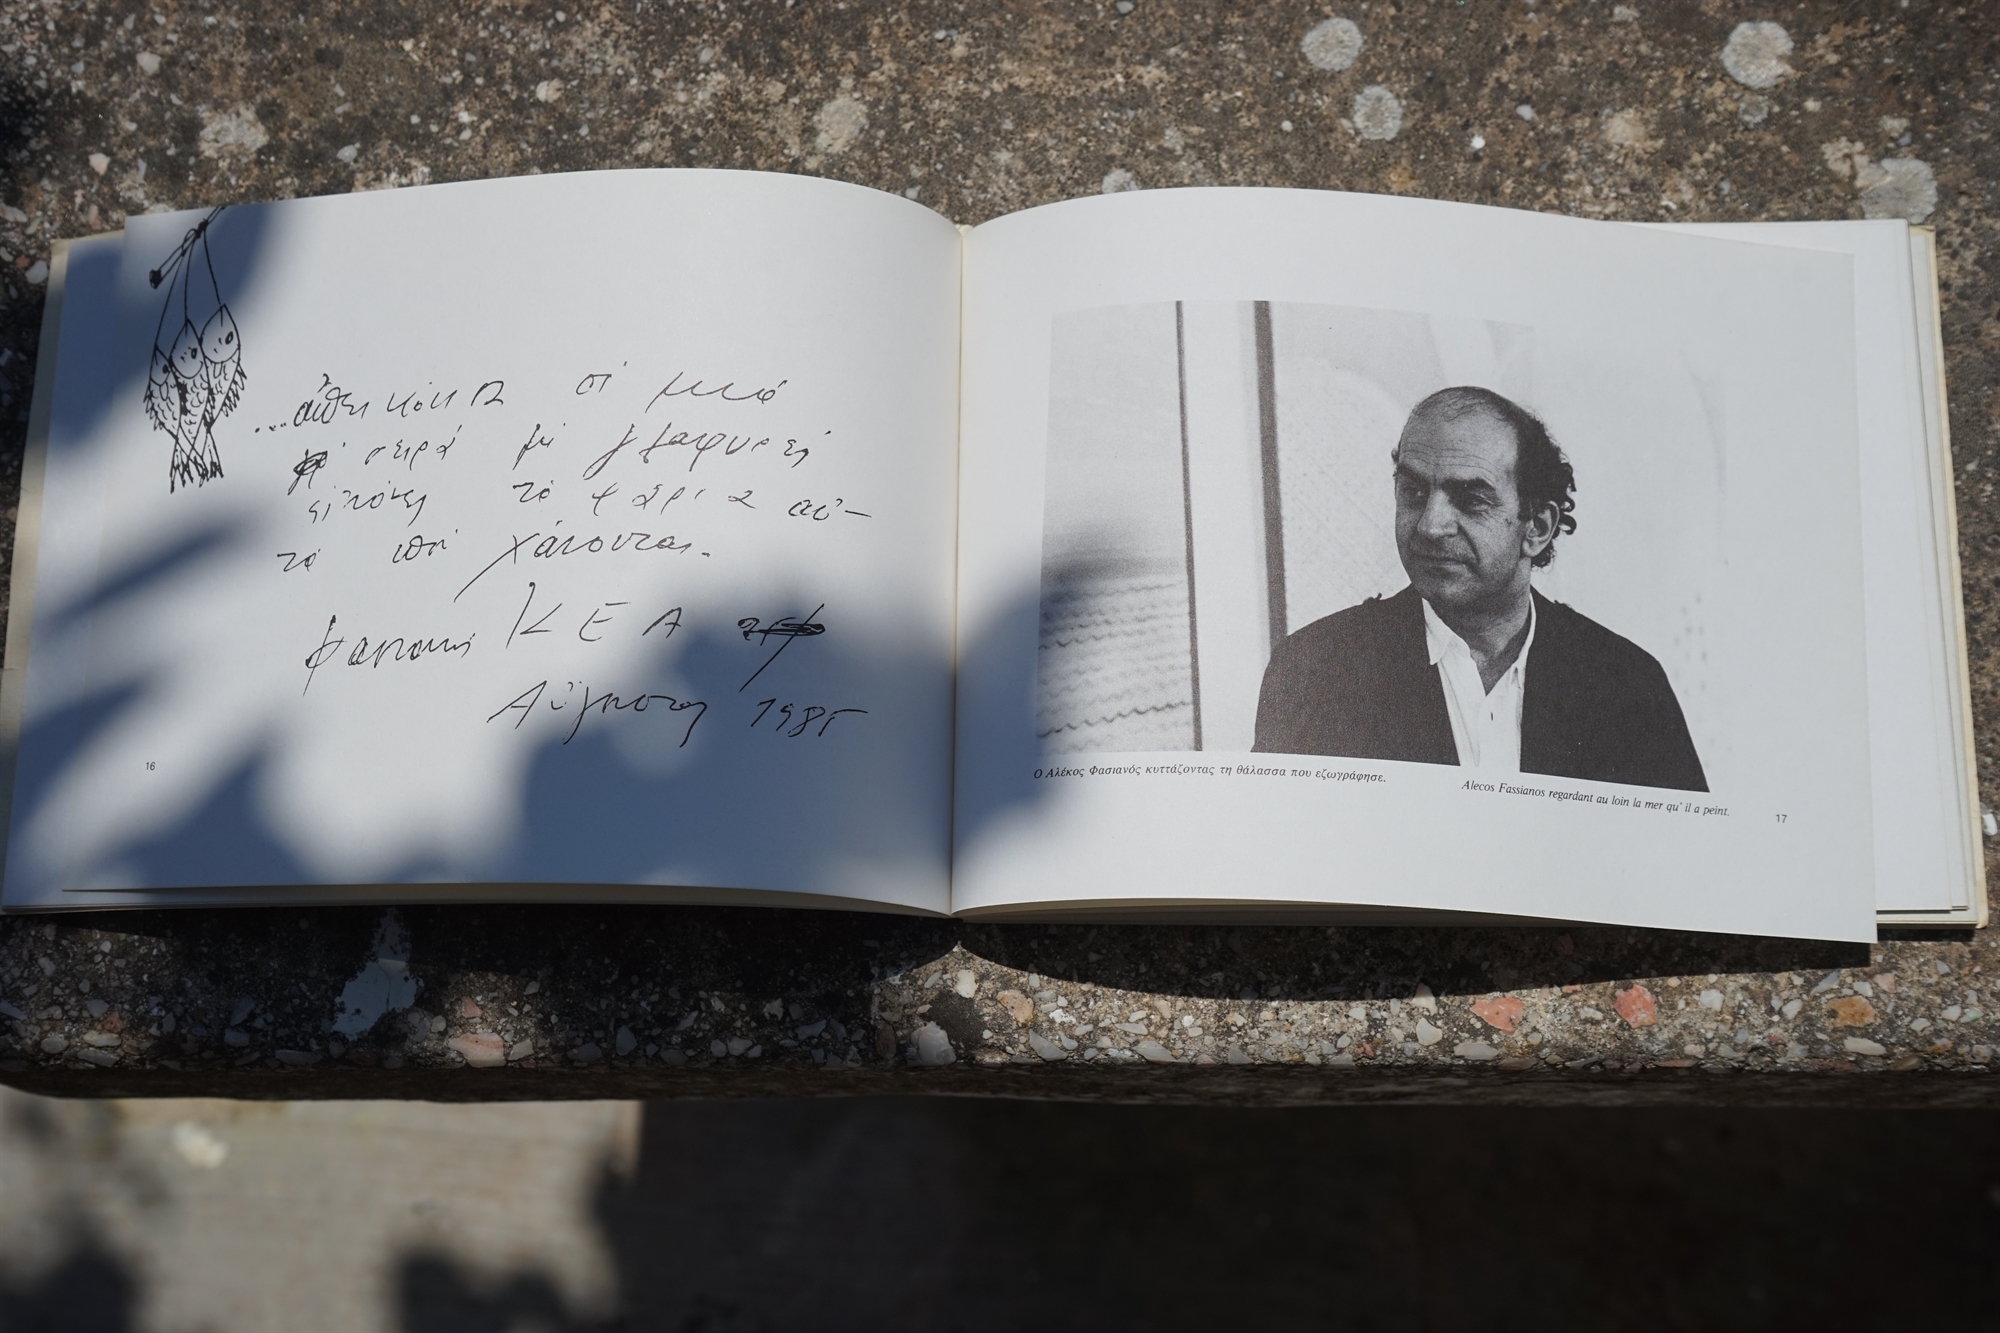 σέ μιά
σειρά μέ γλαφυρές
εἰκόνες τά ψάρια αὐ-
τά πού χάνονται.
Φασιανός ΚΕΑ
Αὔγουστος 1985
16
Ο Αλέκος Φασιανός κυττάζοντας τη θάλασσα που εζωγράφησε.
Alecos Fassianos regardant au loin la mer qu' il a peint.
17